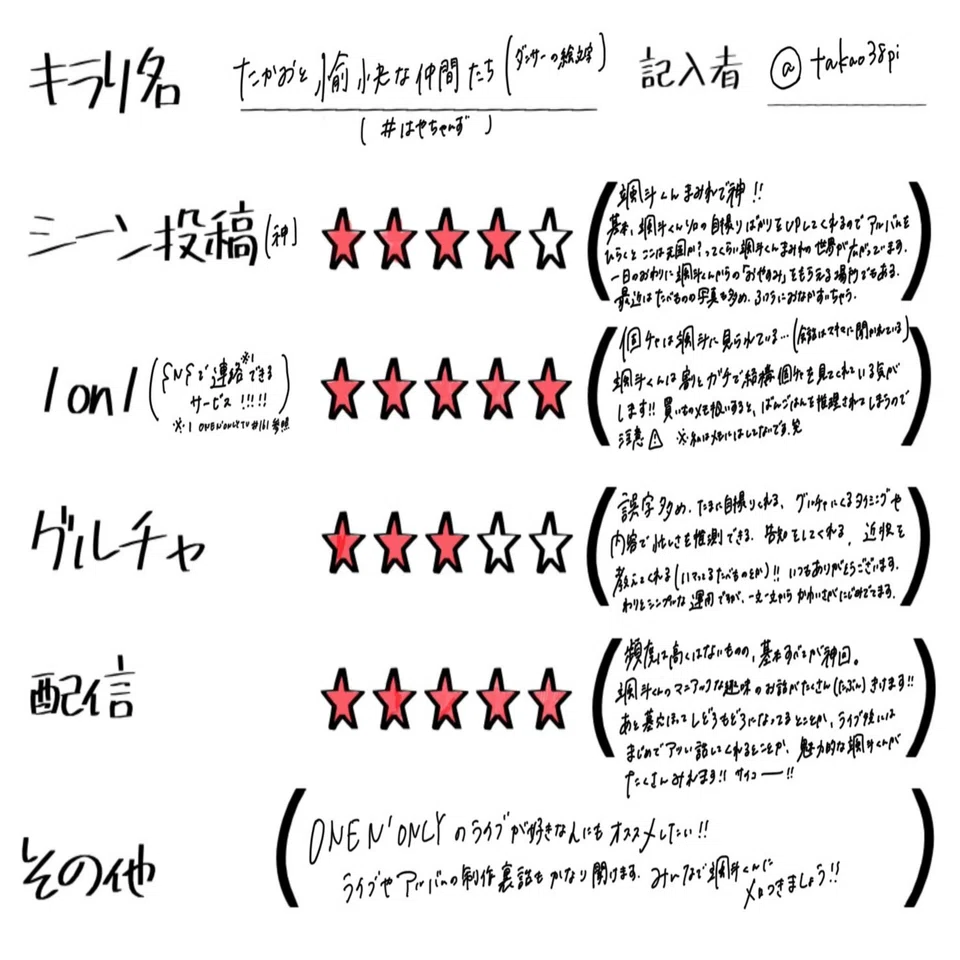 キラリ名
たかおと愉快な仲間たち(ダンサーの絵文字)
(#はやちゃんず)
記入者 @takao38pi
シーン投稿(神)
颯斗くんまみれで神!!
基本、颯斗くんソロの自撮りばかりをUPしてくれるのでアルバムを
ひらくとここは天国か?ってくらい颯斗くんまみれの世界が広がってます。
一日のおわりに颯斗くんからの「おやすみ」をもらえる場所でもある。
最近はたべものの写真も多め。ふつうにおなかすいちゃう。
1on1(SNSで連絡※1できる
サービス!!!!)
※1 ONE N' ONLY TV #161参照
個チャは颯斗に見られている…(会話はスキマに聞かれている)
颯斗くんは割とガチで結構個チャを見てくれている気が
します!! 買いものメモ扱いすると、ばんごはんを推理されてしまうので
注意⚠ ※私はメモにはしてないです笑
グルチャ
誤字多め。たまに自撮りくれる。グルチャにくるタイミングや
内容で忙しさを推測できる。告知をしてくれる。近況を
教えてくれる(いまたべてるたべものとか)!! いつもありがとうございます。
わりとシンプルな運用ですが、一文一文からかわいさがにじみでてます。
配信
頻度は高くはないものの、基本すべてが神回。
颯斗くんのマニアックな趣味のお話がたくさん(たぶん)きけます!!
あと墓穴ほってしどろもどろになってるとことか、ライブ後には
まじめでアツい話してくれるとことか、魅力的な颯斗くんが
たくさんみれます!! サイコー!!
その他
ONE N' ONLYのライブが好きな人にもオススメしたい!!
ライブやアルバムの制作裏話もかなり聞けます。みんなで颯斗くんに
メロつきましょう!!